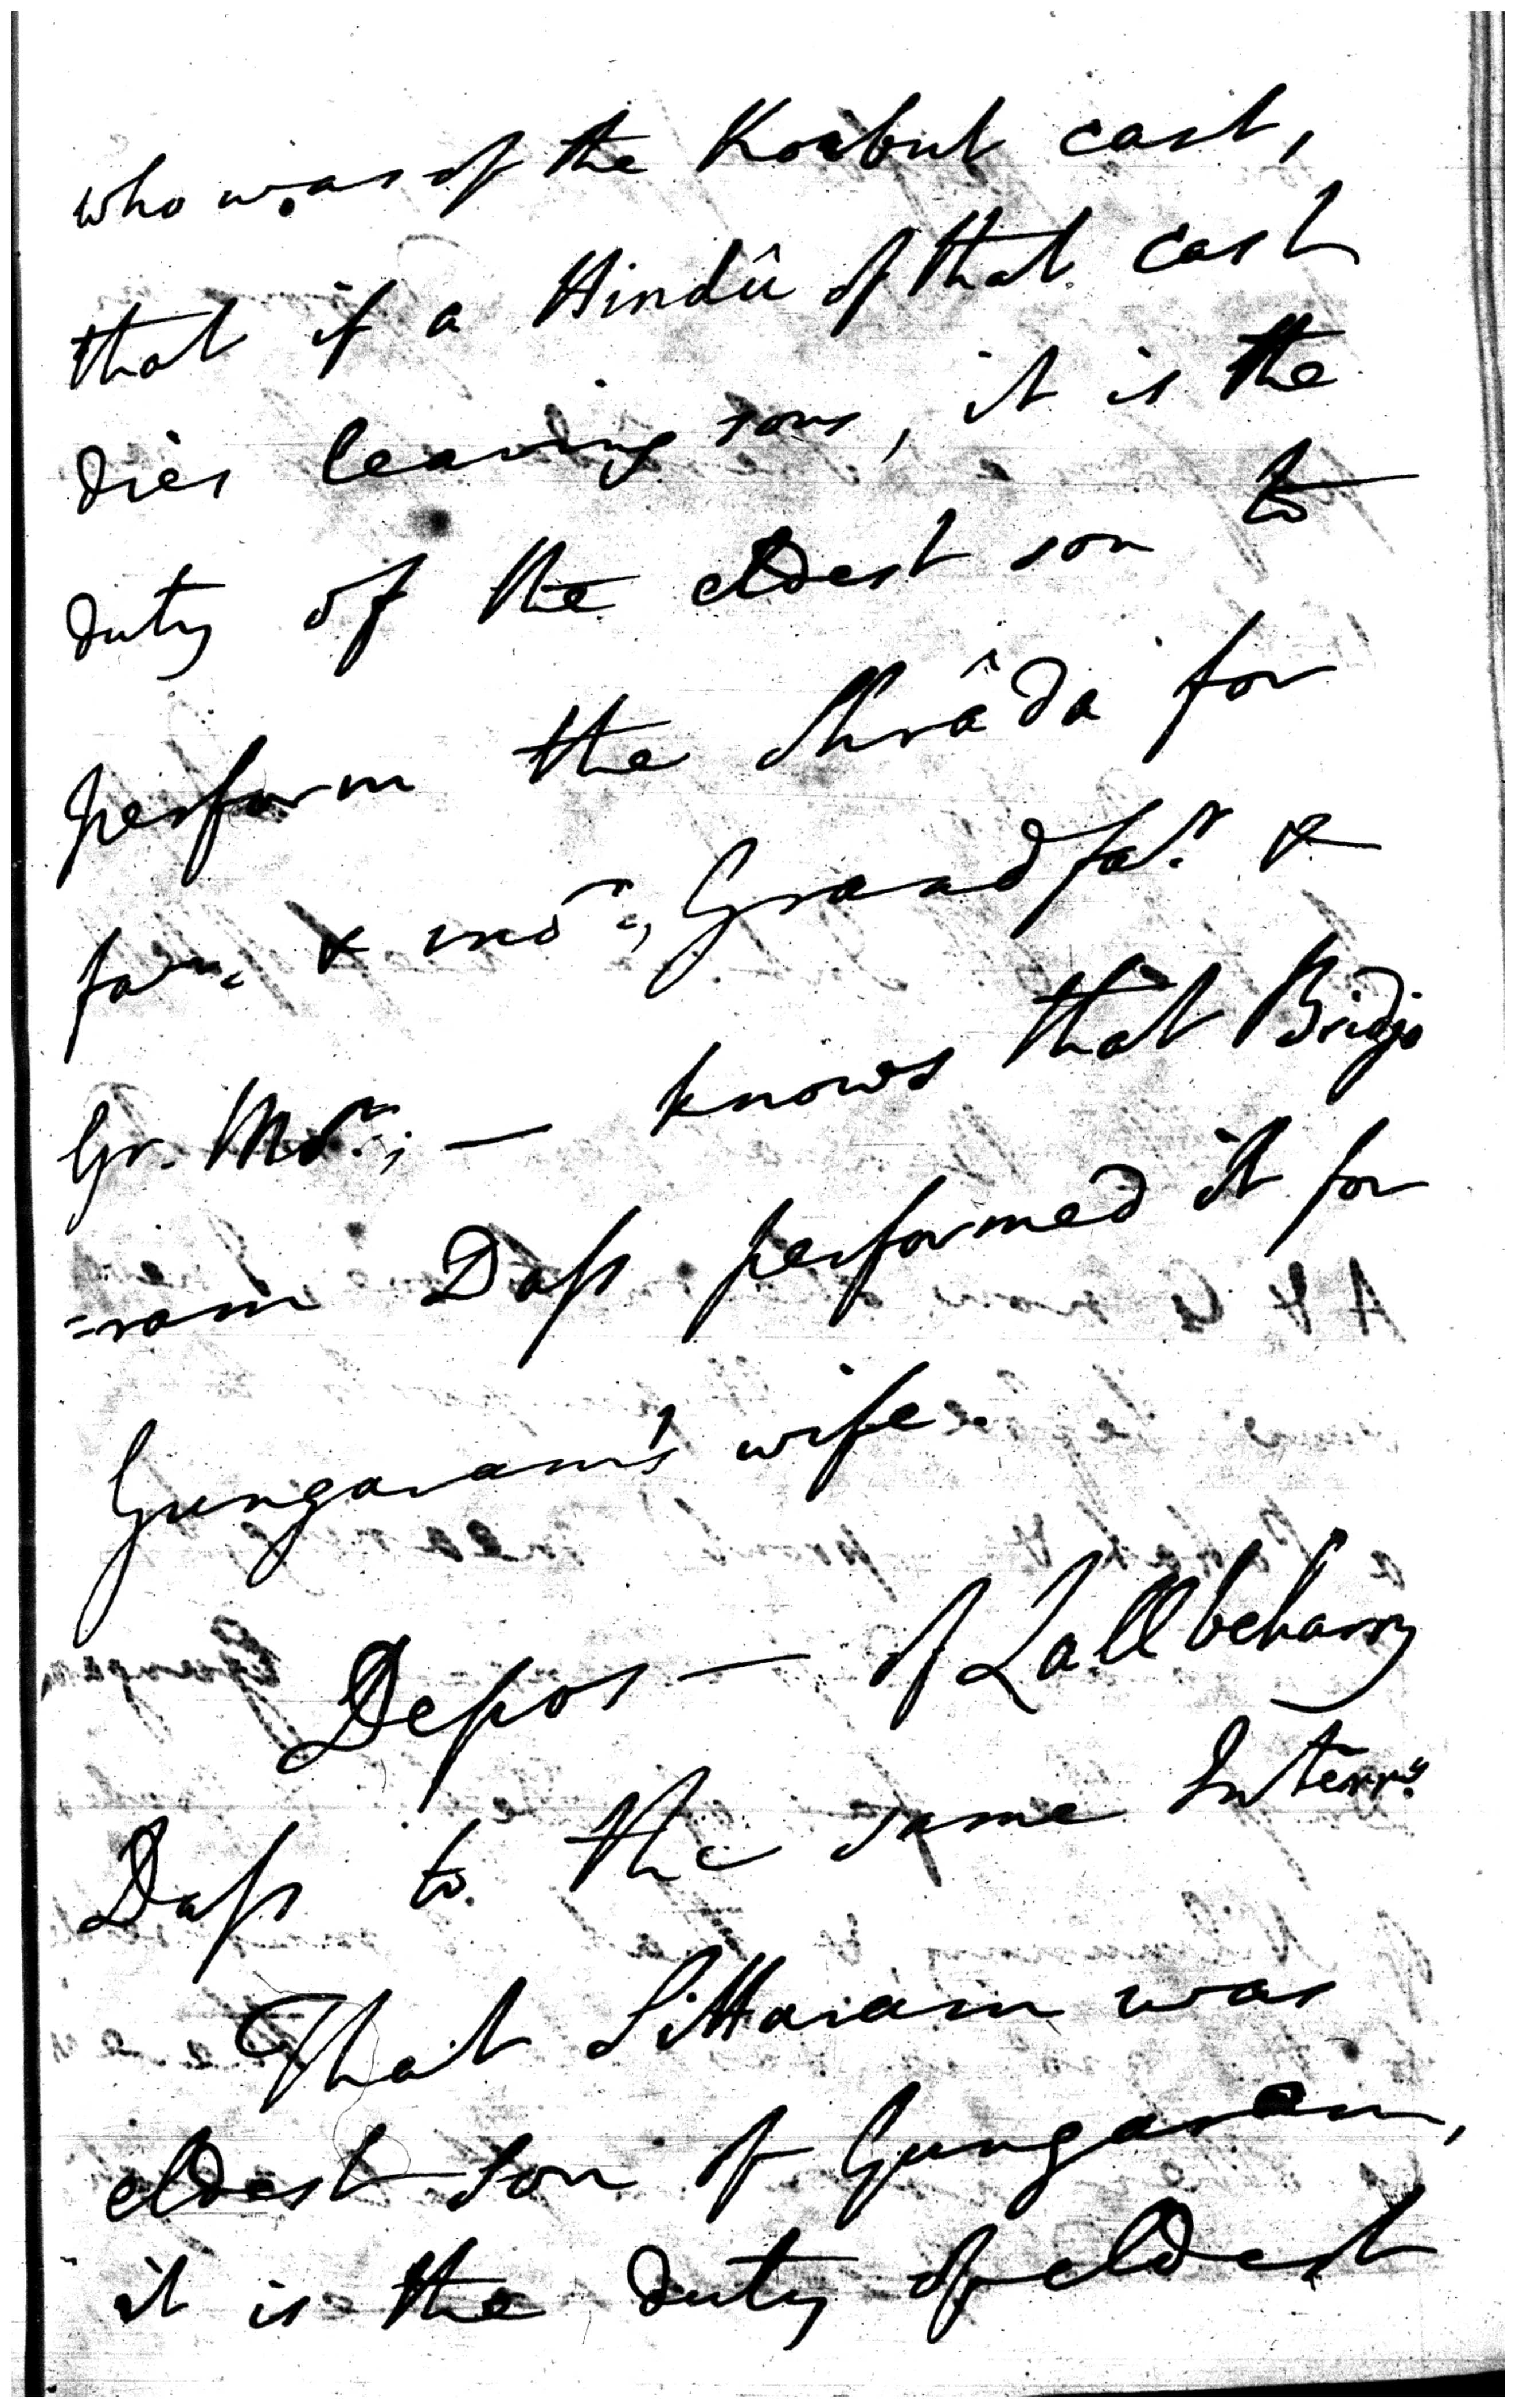 who was of the Koibut cast,
that if a Hindû of that cast
dies leaving sons, it is the
duty of the eldest son to
perform the Shrâda for
far. & mor., Grandfar. &
Gr. Mor.; — knows that Bridjo
=ram Dass performed it for
Gungaram's wife.
Depos — of Lallbeharry
Dass to the same Interry.
That Sittaram was
eldest son of Gungaram,
it is the duty of eldest